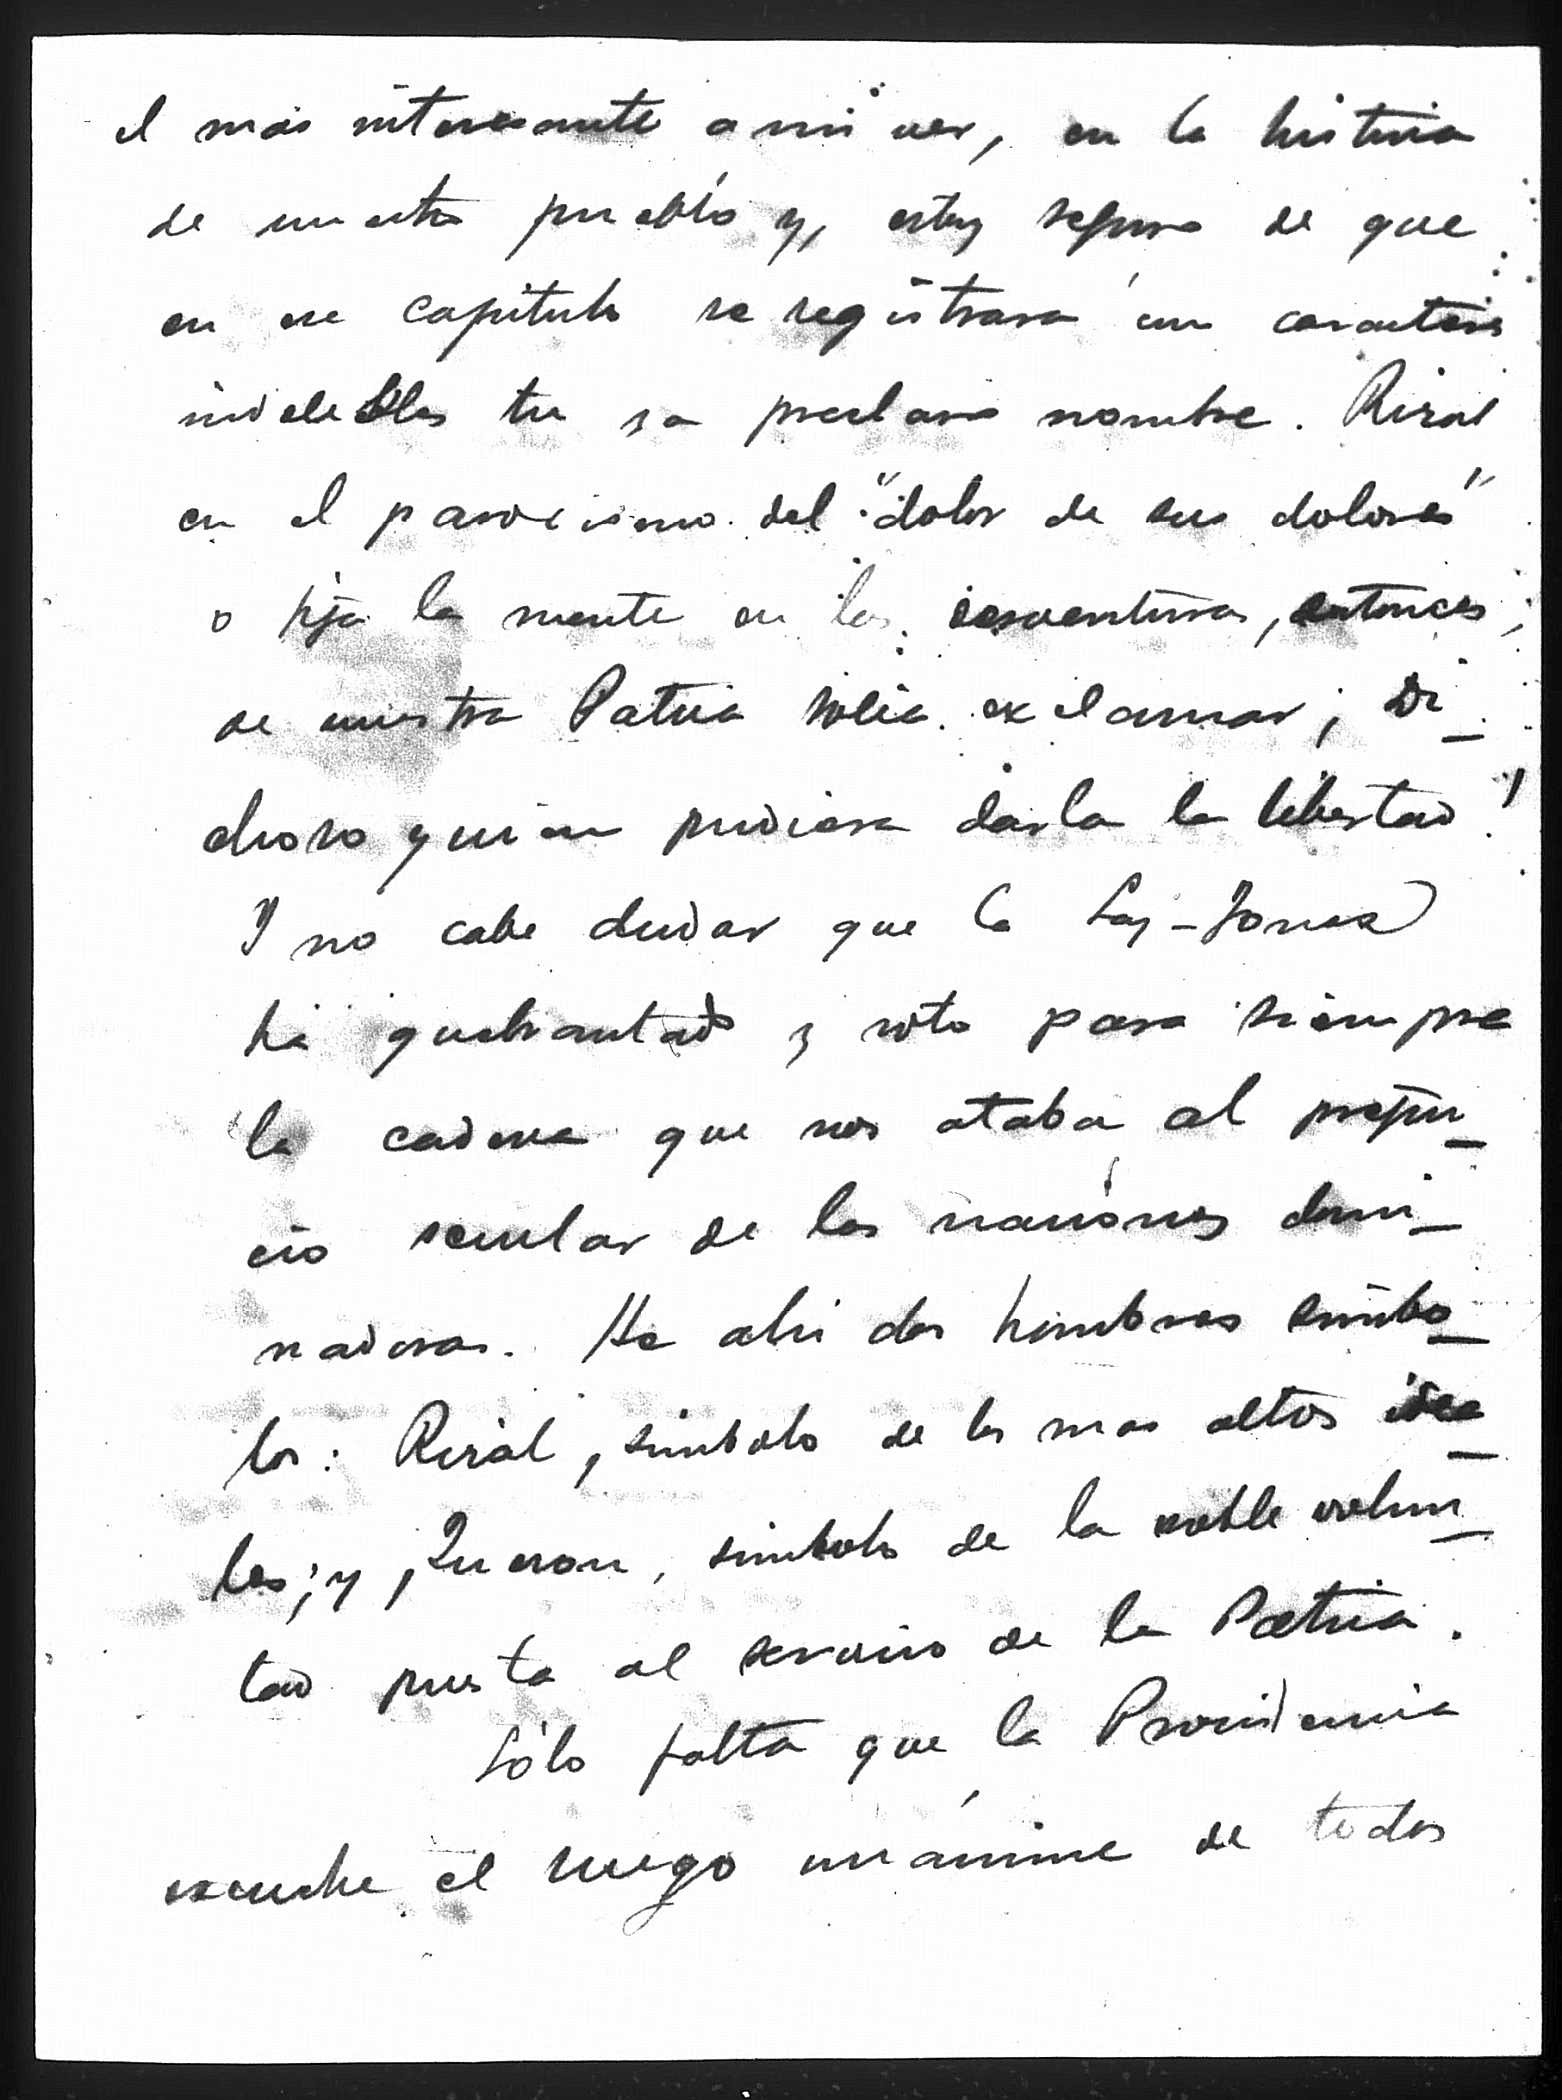 el más interesante a mi ver, en la historia
de nuestro pueblo y, estoy seguro de que
en ese capítulo se registrará en caracteres
indelebles tu ya preclaro nombre. Rizal
en el paroxismo del "dolor de sus dolores"
o fija la mente en las desventuras, entonces,
de nuestra Patria solía exclamar; Di_
choso quien pudiera darla la libertad!
Y no cabe dudar que la Ley-Jones
ha quebrantado y roto para siempre
la cadena que nos ataba al prejui_
cio secular de las naciones domi_
nadoras. He ahi dos hombres simbo_
los: Rizal, simbolo de los mas altos idea_
les; y, Quezon, simbolo de la noble volun_
tad puesta al servicio de la Patria.
Sólo falta que la Providencia
escuche el ruego unánime de todos